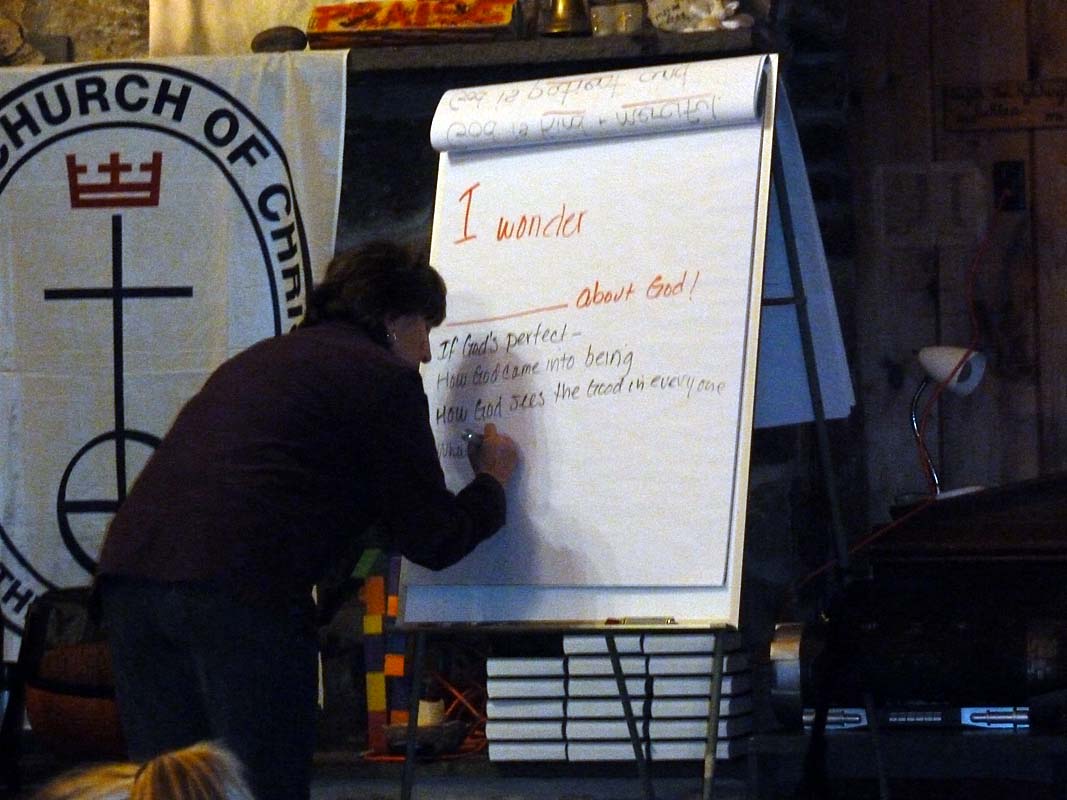 PRAISE
CHURCH OF CHRI
TH
I wonder
about God!
If God's perfect -
How God came into being
How God sees the Good in everyone
Wha
God is kind + merciful